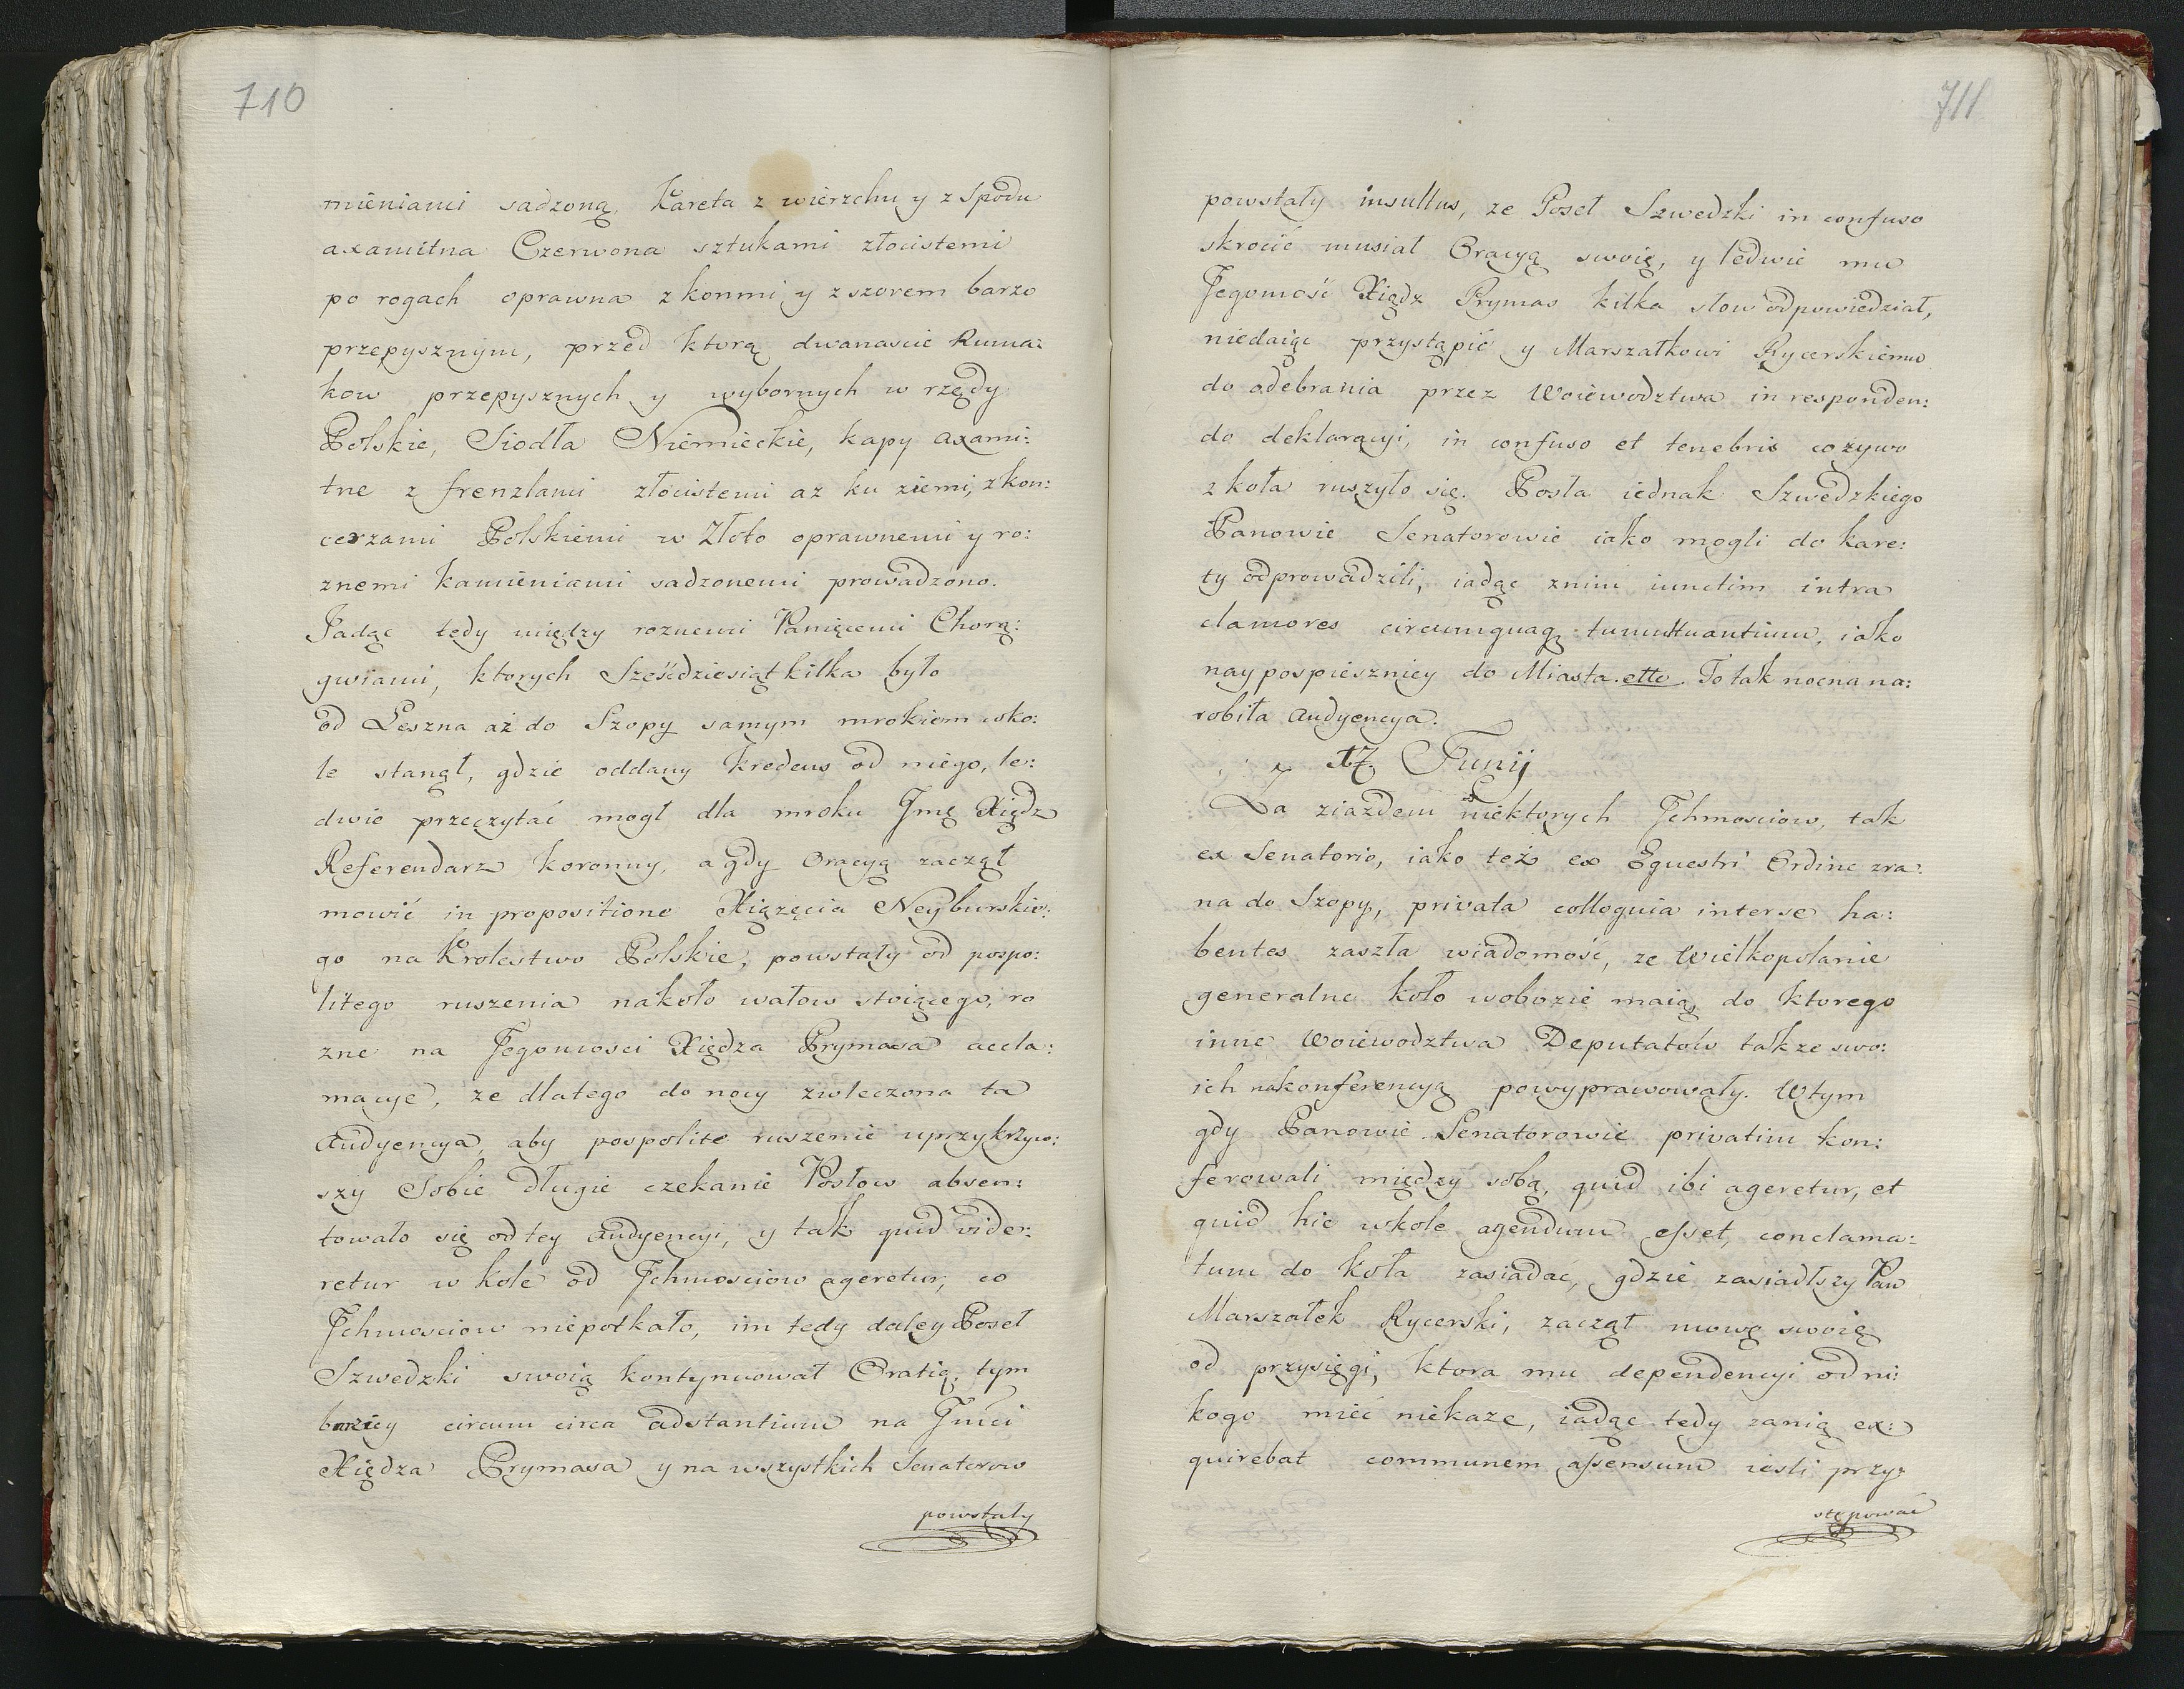 710
mieniami sadzoną, Kareta z wierzchu y z Spodu
axamitna Czerwona sztukami złocistemi
po rogach oprawna z konmi y z szorem barzo
przepysznym, przed ktorą dwanascie Ruma:
kow przepysznych y wybornych w rzędy
Polskie, Siodła Niemieckie, kapy axami:
tne z frenzlami złocistemi az ku ziemi, z kon:
cerzami Polskiemi w Złoto oprawnemi y ro:
znemi kamieniami sadzonemi prowadzono.
Jadąc tedy między roznemi Panięcemi Chorą:
gwiami, ktorych Sześćdziesiąt kilka było
od Leszna aż do Szopy samym mrokiem wko:
le stanął, gdzie oddany kredens od niego, le:
dwie przeczytać mogł dla mroku Jmę Xiądz
Referendarz koronny, a gdy oracyą zaczął
mowić in propositione Xiążęcia Neyburskie:
go na Krolestwo Polskie, powstały od pospo:
litego ruszenia nakoło wałow stoiącego, ro
zne na Jegomosci Xiędza Prymasa accla:
macye, ze dlatego do nocy zwleczona ta
Audyencya, aby pospolite ruszenie uprzykrzyw:
szy Sobie długie czekanie Posłow absen:
towało się od tey Audyencyi, y tak quid vide:
retur w kole od Jchmosciow ageretur, co
Jchmosciow niepotkało, im tedy daley Poseł
Szwedzki swoią kontynuował Oratią, tym
barziey circum circa adstantium na Jmci
Xiędza Prymasa y na wszystkich Senatorow
powstały
711
powstały insultus, ze Poseł Szwedzki in confuso
skrocić musiał Oracyą swoię, y ledwie mu
Jegomość Xiądz Prymas kilka słow odpowiedział,
niedaiąc przystąpić y Marszałkowi Rycerskiemu
do odebrania przez Woiewodztwa in responden:
do deklaracyi, in confuso et tenebris co zywo
z koła ruszyło się. Posła iednak Szwedzkiego
Panowie Senatorowie iako mogli do kare:
ty odprowadzili, iadąc znim iunctim intra
clamores circumquaq tumultuantium, iako
nay pospieszniey do Miasta. ettc To tak nocna na:
robiła Audyencya.
17. Junij
Za ziazdem niektorych Jchmosciow, tak
ex Senatorio, iako też ex Equestri Ordine zra:
na do Szopy, privata colloquia inter se ha:
bentes zaszła wiadomość, ze Wielkopolanie
generalne koło wobozie maią, do ktorego
inne Woiewodztwa Deputatow takze swo:
ich na konferencyą powyprawowały. Wtym
gdy Panowie Senatorowie privatim kon:
ferowali między sobą, quid ibi ageretur, et
quid hic wkole agendum esset, conclama:
tum do koła zasiadac, gdzie zasiadłszy Pan
Marszałek Rycerski, zaczął mowę swoię
od przysięgi, ktora mu dependencyi od ni:
kogo mieć niekaze, iadąc tedy zanią ex:
quirebat communem assensum iesli przy:
stępować